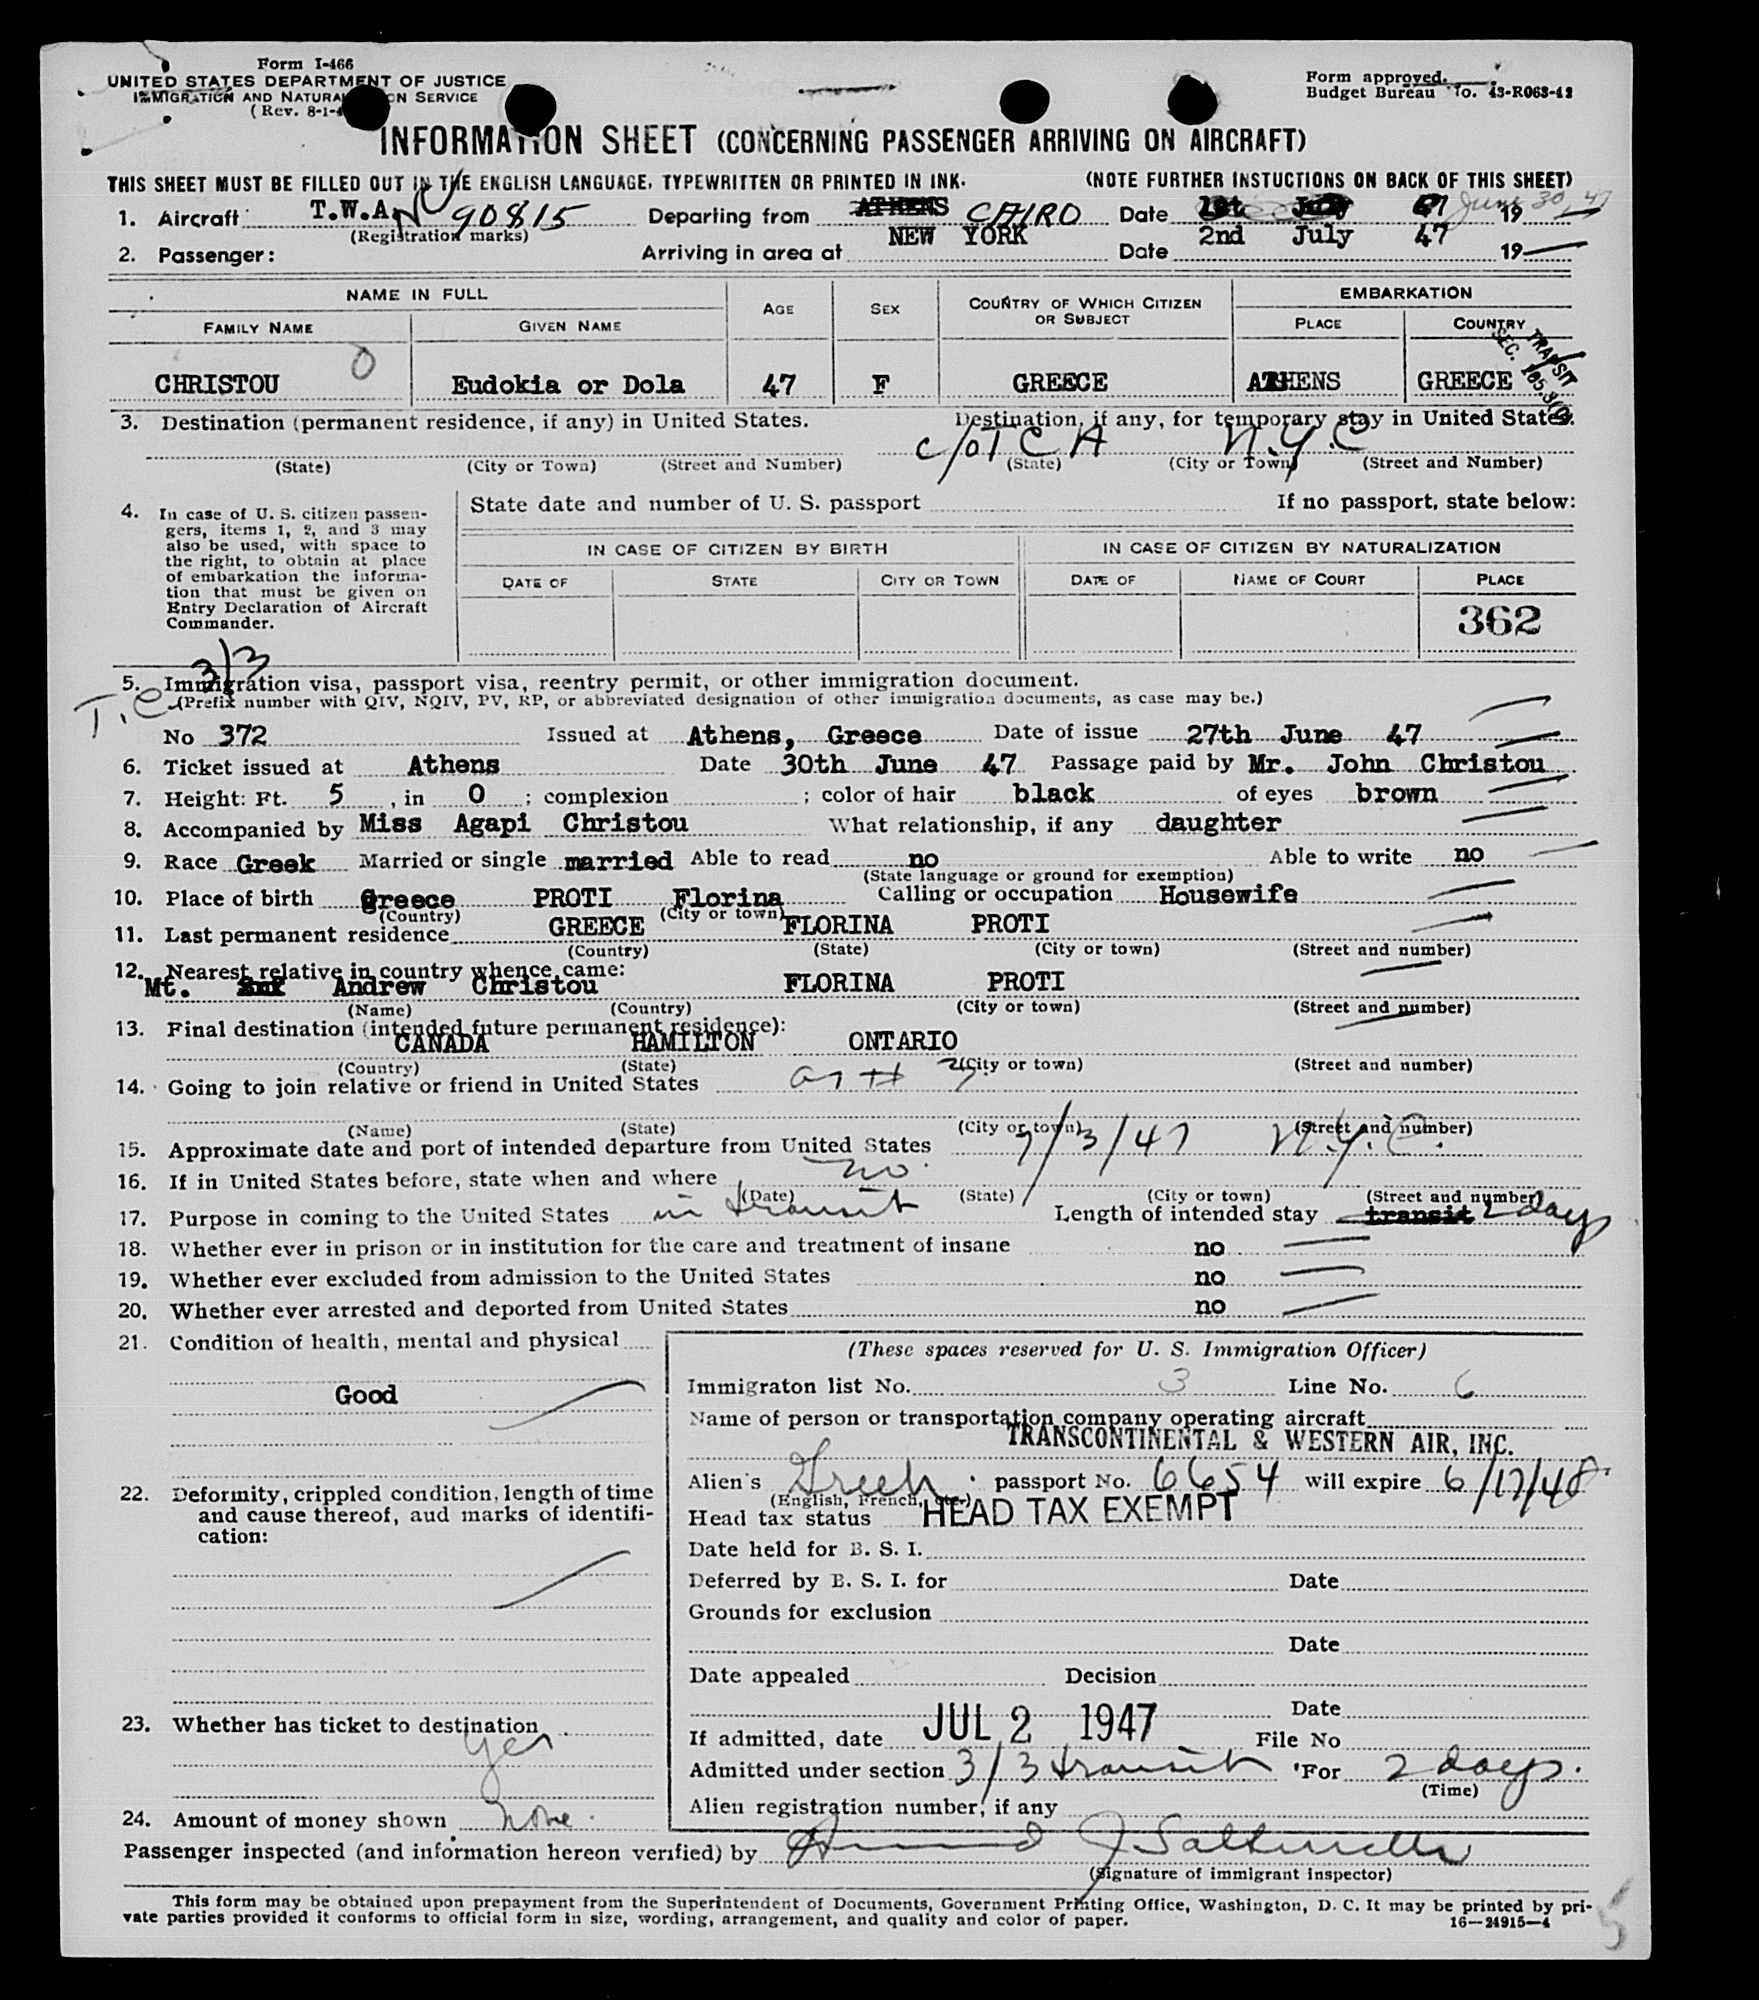 Form I-466
UNITED STATES DEPARTMENT OF JUSTICE
IMMIGRATION AND NATURALIZATION SERVICE
(Rev. 8-1-
Form approved.
Budget Bureau No. 43-R063-42
INFORMATION SHEET (CONCERNING PASSENGER ARRIVING ON AIRCRAFT)
THIS SHEET MUST BE FILLED OUT IN THE ENGLISH LANGUAGE, TYPEWRITTEN OR PRINTED IN INK. (NOTE FURTHER INSTUCTIONS ON BACK OF THIS SHEET)
1. Aircraft T.W.A. NC 90815 Departing from ATHENS CAIRO Date 1st July 47 June 30, 47 19
(Registration marks)
2. Passenger: Arriving in area at NEW YORK Date 2nd July 47 19
NAME IN FULL AGE SEX COUNTRY OF WHICH CITIZEN OR SUBJECT EMBARKATION
FAMILY NAME GIVEN NAME PLACE COUNTRY
TRANSIT
SEC.
CHRISTOU O Eudokia or Dola 47 F GREECE ATHENS GREECE
3. Destination (permanent residence, if any) in United States. Destination, if any, for temporary stay in United States.
c/o T C A N.Y.C
(State) (City or Town) (Street and Number) (State) (City or Town) (Street and Number)
4. In case of U. S. citizen passengers, items 1, 2, and 3 may also be used, with space to the right, to obtain at place of embarkation the information that must be given on Entry Declaration of Aircraft Commander.
State date and number of U. S. passport If no passport, state below:
IN CASE OF CITIZEN BY BIRTH IN CASE OF CITIZEN BY NATURALIZATION
DATE OF STATE CITY OR TOWN DATE OF NAME OF COURT PLACE
362
3/3
5. Immigration visa, passport visa, reentry permit, or other immigration document.
T.C. (Prefix number with QIV, NQIV, PV, RP, or abbreviated designation of other immigration documents, as case may be.)
No 372 Issued at Athens, Greece Date of issue 27th June 47
6. Ticket issued at Athens Date 30th June 47 Passage paid by Mr. John Christou
7. Height: Ft. 5, in 0; complexion ; color of hair black of eyes brown
8. Accompanied by Miss Agapi Christou What relationship, if any daughter
9. Race Greek Married or single married Able to read no Able to write no
(State language or ground for exemption)
10. Place of birth Greece PROTI Florina Calling or occupation Housewife
(Country) (City or town)
11. Last permanent residence GREECE FLORINA PROTI
(Country) (State) (City or town) (Street and number)
12. Nearest relative in country whence came:
Mt. Andrew Christou FLORINA PROTI
(Name) (Country) (City or town) (Street and number)
13. Final destination (intended future permanent residence):
CANADA HAMILTON ONTARIO
(Country) (State) (City or town) (Street and number)
14. Going to join relative or friend in United States
(Name) (State) (City or town) (Street and number)
15. Approximate date and port of intended departure from United States 7/3/47 N.Y.C.
16. If in United States before, state when and where no.
(Date) (State) (City or town) (Street and number)
17. Purpose in coming to the United States in transit Length of intended stay transit 2 days
18. Whether ever in prison or in institution for the care and treatment of insane no
19. Whether ever excluded from admission to the United States no
20. Whether ever arrested and deported from United States no
21. Condition of health, mental and physical
Good
22. Deformity, crippled condition, length of time and cause thereof, aud marks of identification:
23. Whether has ticket to destination
yes
24. Amount of money shown none.
(These spaces reserved for U. S. Immigration Officer)
Immigraton list No. 3 Line No. 6
Name of person or transportation company operating aircraft
TRANSCONTINENTAL & WESTERN AIR, INC.
Alien's Greek passport No. 6654 will expire 6/17/48
(English, French, etc.)
Head tax status HEAD TAX EXEMPT
Date held for B. S. I.
Deferred by B. S. I. for Date
Grounds for exclusion
Date
Date appealed Decision
Date
If admitted, date JUL 2 1947 File No
Admitted under section 3/3 transit For 2 days.
(Time)
Alien registration number, if any
Passenger inspected (and information hereon verified) by
(Signature of immigrant inspector)
This form may be obtained upon prepayment from the Superintendent of Documents, Government Printing Office, Washington, D. C. It may be printed by pri-
vate parties provided it conforms to official form in size, wording, arrangement, and quality and color of paper. 16—24915—4
5